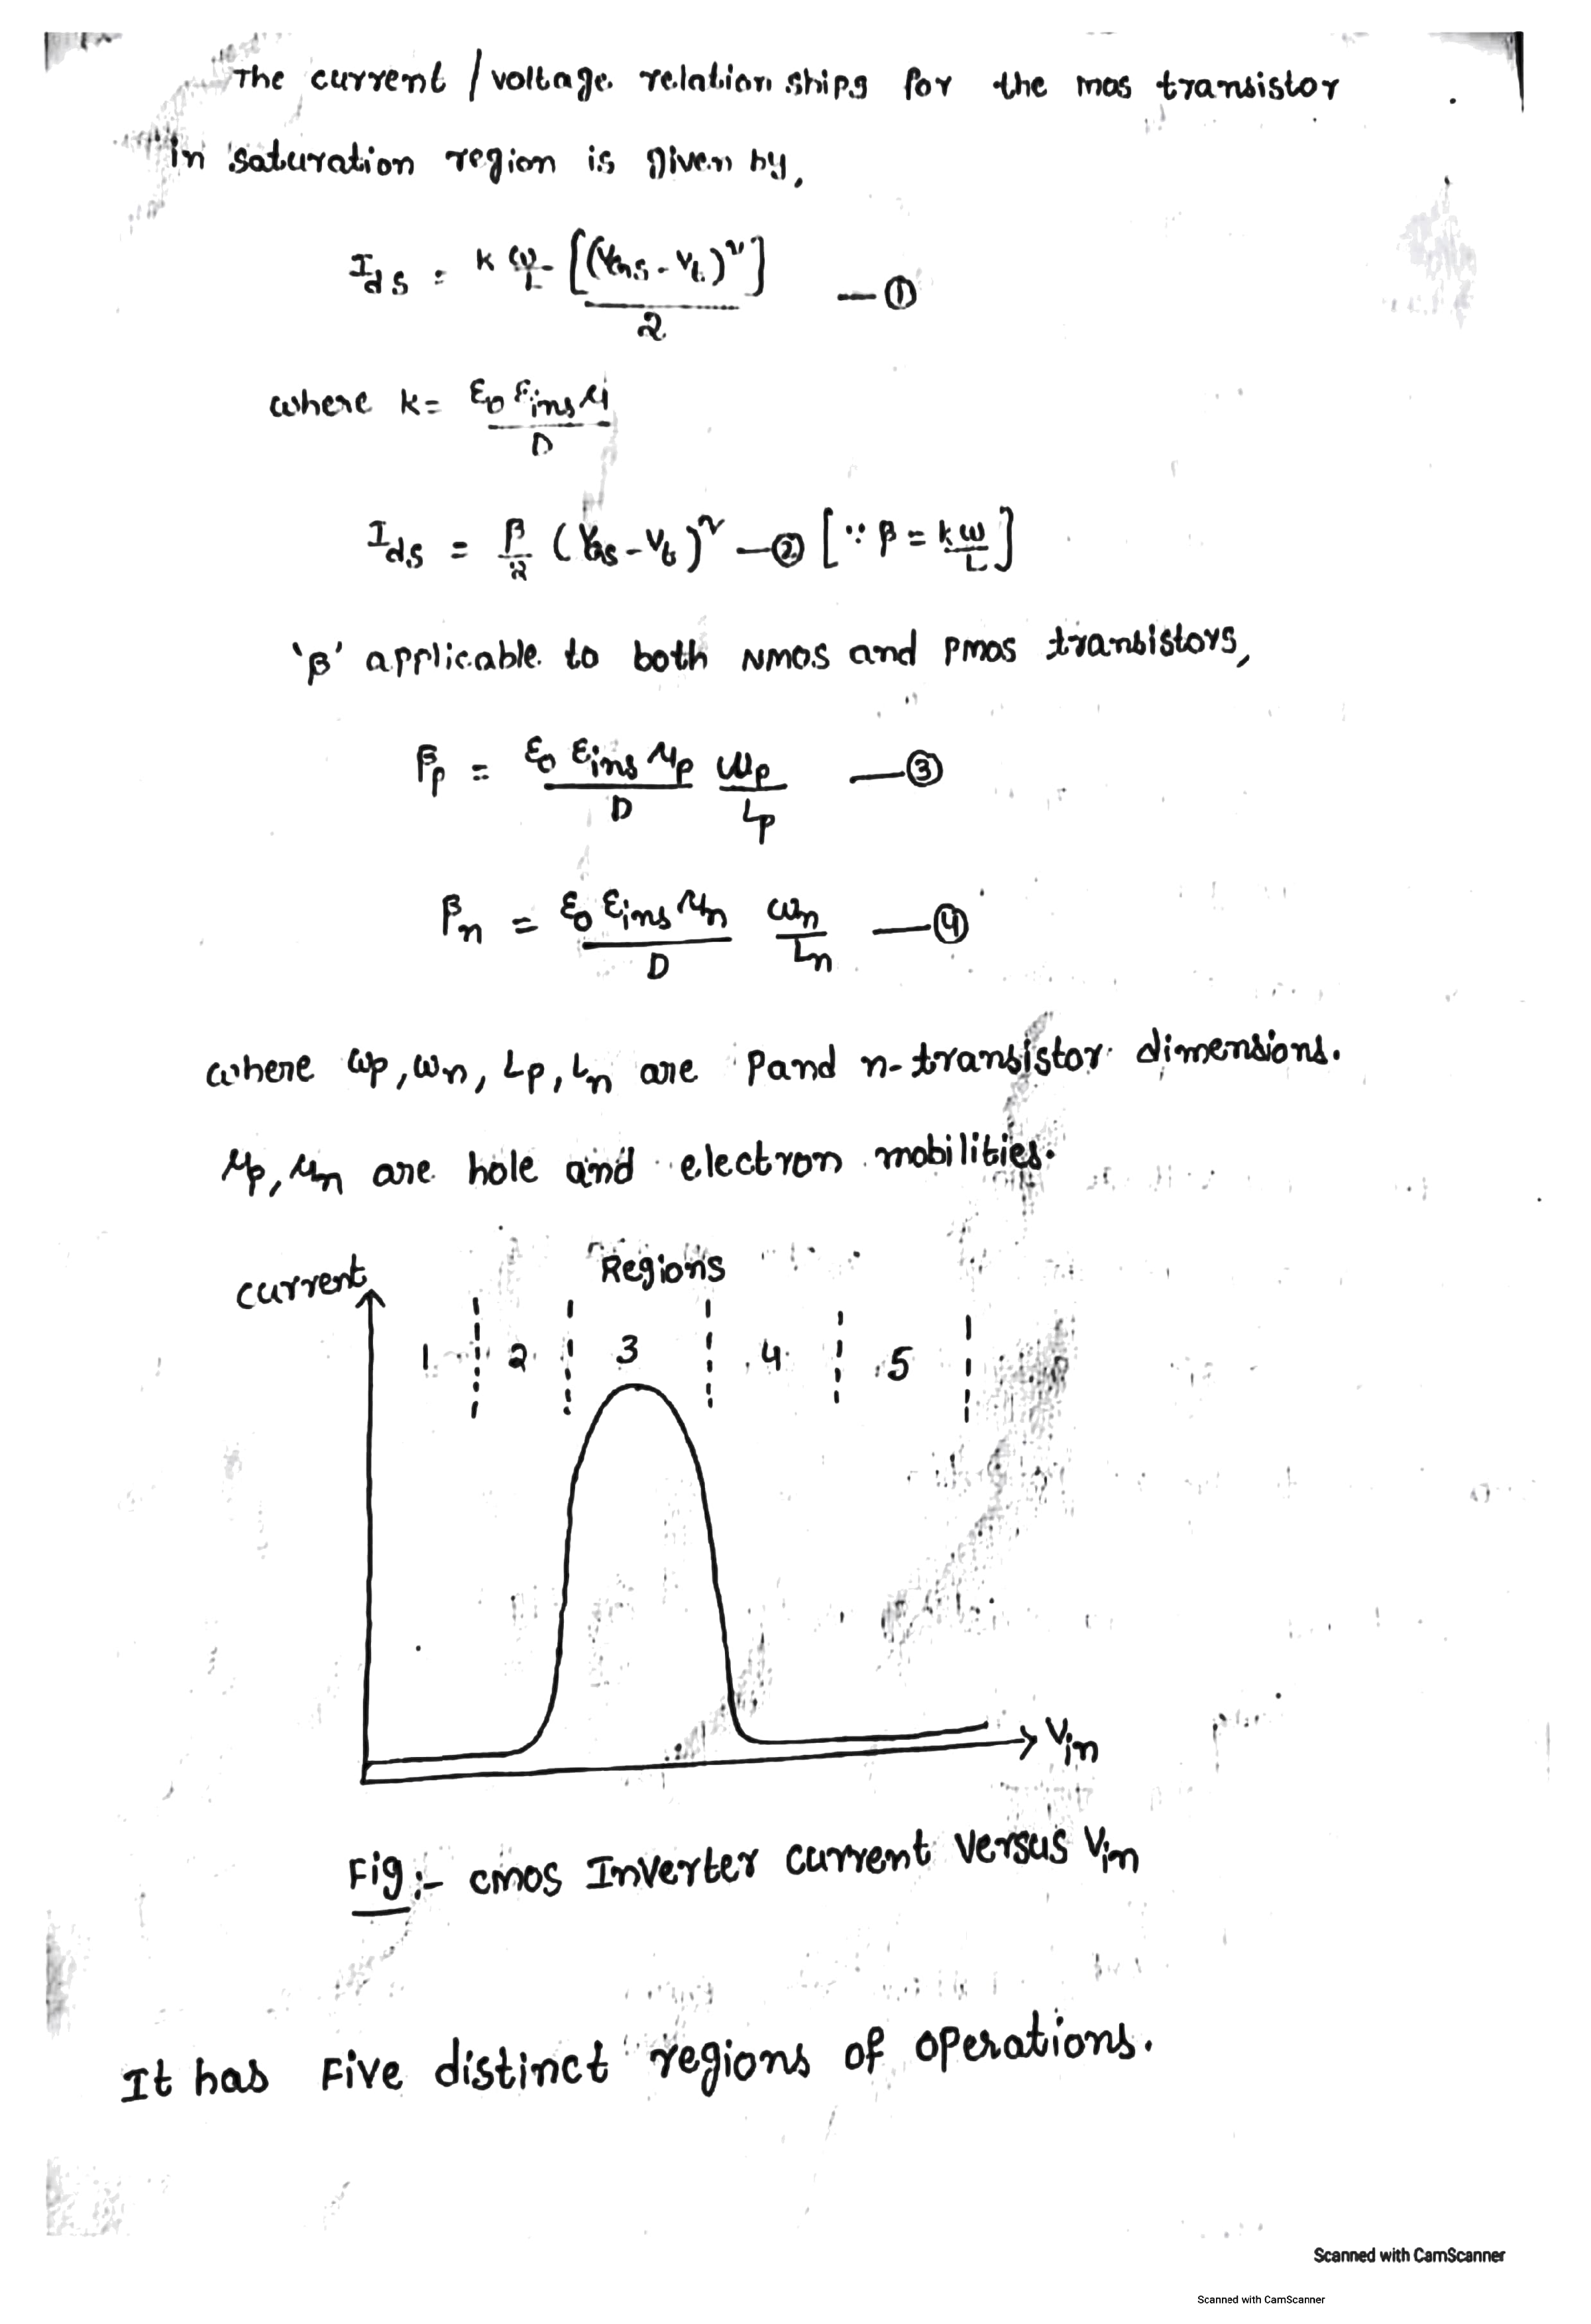 The current / voltage relation ships for the mos transistor
in saturation region is given by,
I_ds = k W/L [(V_GS - V_t)²]/2 —①
where k = ε₀ ε_ins μ / D
I_ds = β/2 (V_GS - V_t)² —② [∵ β = k W/L]
'β' applicable to both NMOS and PMOS transistors,
β_p = ε₀ ε_ins μ_p / D  W_p / L_p —③
β_n = ε₀ ε_ins μ_n / D  W_n / L_n —④
where W_p, W_n, L_p, L_n are P and n- transistor dimensions.
μ_p, μ_n are hole and electron mobilities.
Regions
current
1 2 3 4 5
V_in
Fig:- cmos Inverter current versus V_in
It has Five distinct regions of operations.
Scanned with CamScanner
Scanned with CamScanner